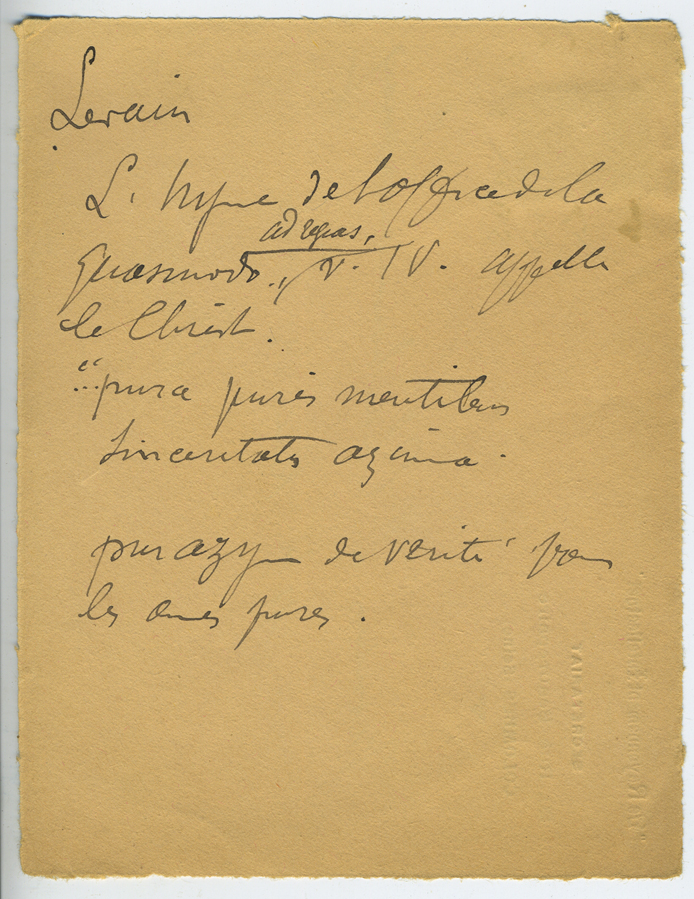 Levain
L'hymne de l'office de la
ad regias,
Quasimodo, v. IV. appelle
le Christ.
"... pura puris mentibus
Sinceritatis azima.
pur azyme de vérité pour
les âmes pures.